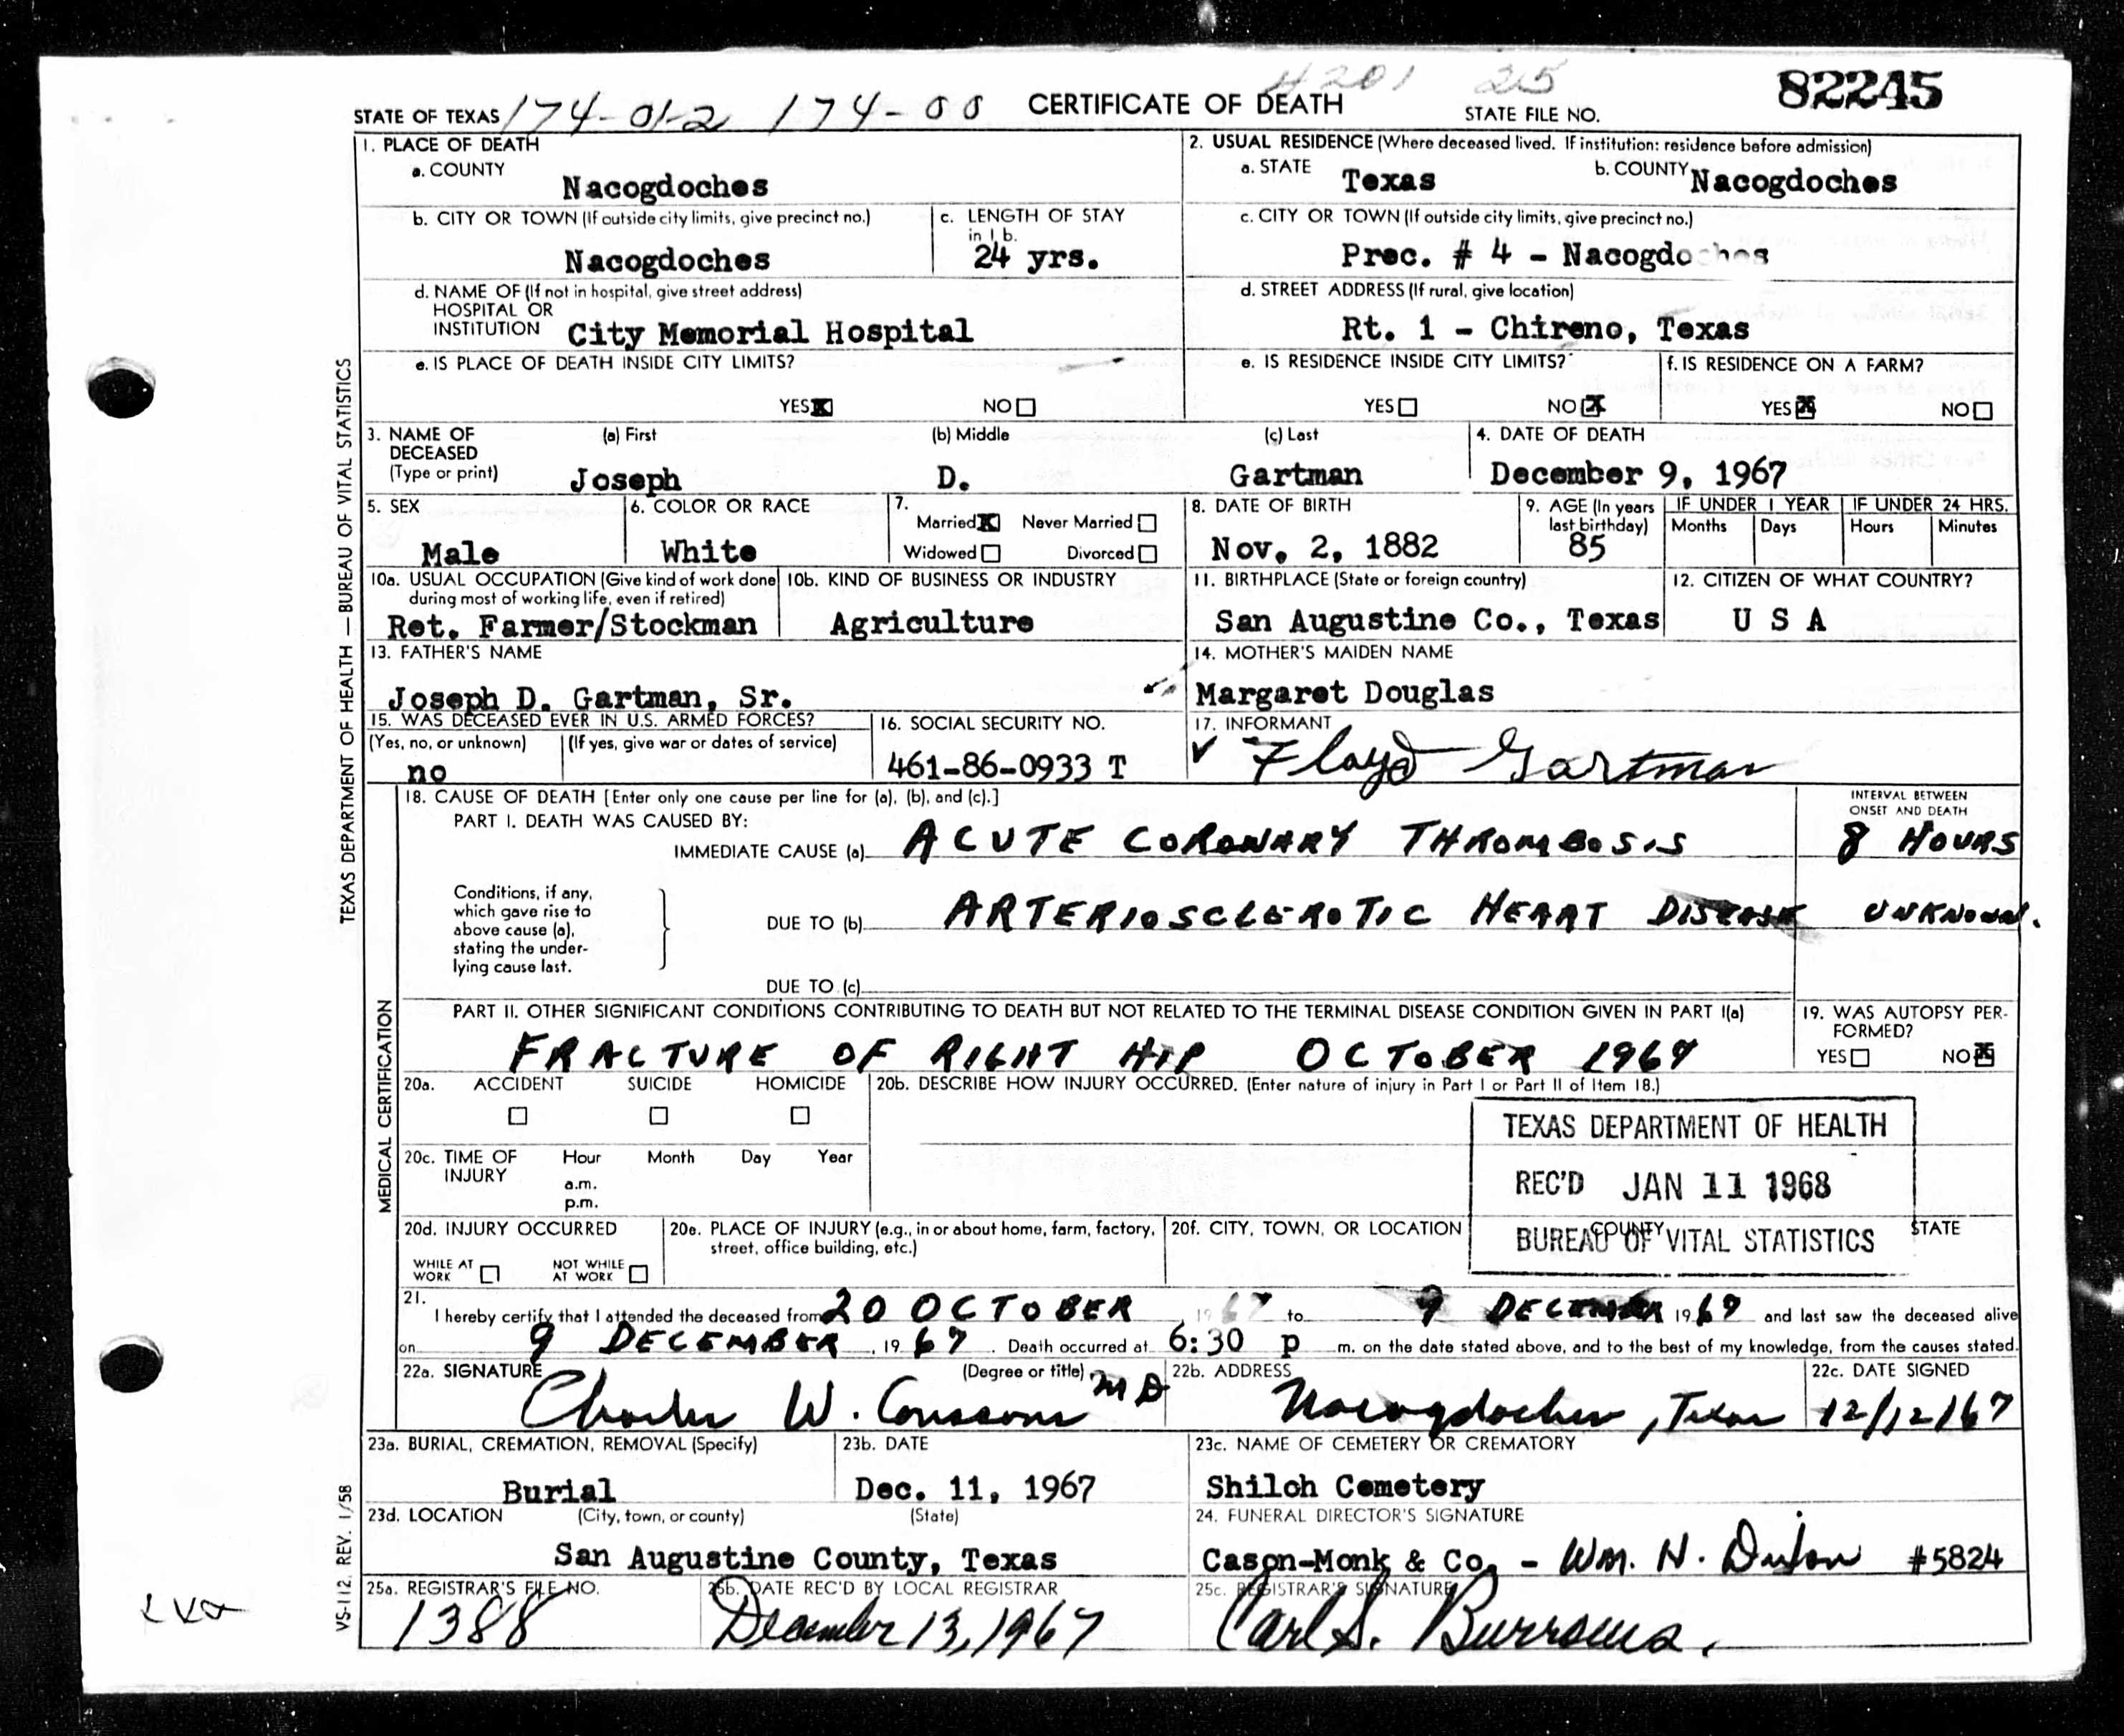 4201 25
82245
STATE OF TEXAS 174-01-2 174-00 CERTIFICATE OF DEATH STATE FILE NO.
1. PLACE OF DEATH
a. COUNTY
Nacogdoches
2. USUAL RESIDENCE (Where deceased lived. If institution: residence before admission)
a. STATE Texas b. COUNTY Nacogdoches
b. CITY OR TOWN (If outside city limits, give precinct no.)
Nacogdoches
c. LENGTH OF STAY
in 1 b.
24 yrs.
c. CITY OR TOWN (If outside city limits, give precinct no.)
Prec. # 4 - Nacogdoches
d. NAME OF (If not in hospital, give street address)
HOSPITAL OR
INSTITUTION City Memorial Hospital
d. STREET ADDRESS (If rural, give location)
Rt. 1 - Chireno, Texas
e. IS PLACE OF DEATH INSIDE CITY LIMITS?
YES NO
e. IS RESIDENCE INSIDE CITY LIMITS?
YES NO
f. IS RESIDENCE ON A FARM?
YES NO
3. NAME OF
DECEASED
(Type or print)
(a) First (b) Middle (c) Last
Joseph D. Gartman
4. DATE OF DEATH
December 9, 1967
5. SEX
Male
6. COLOR OR RACE
White
7.
Married Never Married
Widowed Divorced
8. DATE OF BIRTH
Nov. 2, 1882
9. AGE (In years
last birthday)
85
IF UNDER 1 YEAR
Months Days
IF UNDER 24 HRS.
Hours Minutes
10a. USUAL OCCUPATION (Give kind of work done
during most of working life, even if retired)
Ret. Farmer/Stockman
10b. KIND OF BUSINESS OR INDUSTRY
Agriculture
11. BIRTHPLACE (State or foreign country)
San Augustine Co., Texas
12. CITIZEN OF WHAT COUNTRY?
U S A
13. FATHER'S NAME
Joseph D. Gartman, Sr.
14. MOTHER'S MAIDEN NAME
Margaret Douglas
15. WAS DECEASED EVER IN U.S. ARMED FORCES?
(Yes, no, or unknown) (If yes, give war or dates of service)
no
16. SOCIAL SECURITY NO.
461-86-0933 T
17. INFORMANT
Floyd Gartman
18. CAUSE OF DEATH [Enter only one cause per line for (a), (b), and (c).]
PART I. DEATH WAS CAUSED BY:
IMMEDIATE CAUSE (a) ACUTE CORONARY THROMBOSIS
INTERVAL BETWEEN
ONSET AND DEATH
8 HOURS
Conditions, if any,
which gave rise to
above cause (a),
stating the under-
lying cause last.
DUE TO (b) ARTERIOSCLEROTIC HEART DISEASE UNKNOWN.
DUE TO (c)
PART II. OTHER SIGNIFICANT CONDITIONS CONTRIBUTING TO DEATH BUT NOT RELATED TO THE TERMINAL DISEASE CONDITION GIVEN IN PART I(a)
FRACTURE OF RIGHT HIP OCTOBER 1967
19. WAS AUTOPSY PER-
FORMED?
YES NO
20a. ACCIDENT SUICIDE HOMICIDE
20b. DESCRIBE HOW INJURY OCCURRED. (Enter nature of injury in Part I or Part II of Item 18.)
20c. TIME OF
INJURY
Hour Month Day Year
a.m.
p.m.
TEXAS DEPARTMENT OF HEALTH
REC'D JAN 11 1968
BUREAU OF VITAL STATISTICS
20d. INJURY OCCURRED
WHILE AT
WORK
NOT WHILE
AT WORK
20e. PLACE OF INJURY (e.g., in or about home, farm, factory,
street, office building, etc.)
20f. CITY, TOWN, OR LOCATION COUNTY STATE
21.
I hereby certify that I attended the deceased from 20 OCTOBER 1967 to 9 DECEMBER 1967 and last saw the deceased alive
on 9 DECEMBER, 1967. Death occurred at 6:30 p m. on the date stated above, and to the best of my knowledge, from the causes stated.
22a. SIGNATURE (Degree or title)
Charles W. MD
22b. ADDRESS
Nacogdoches, Texas
22c. DATE SIGNED
12/12/67
23a. BURIAL, CREMATION, REMOVAL (Specify)
Burial
23b. DATE
Dec. 11, 1967
23c. NAME OF CEMETERY OR CREMATORY
Shiloh Cemetery
23d. LOCATION (City, town, or county) (State)
San Augustine County, Texas
24. FUNERAL DIRECTOR'S SIGNATURE
Cason-Monk & Co. - Wm. H. #5824
25a. REGISTRAR'S FILE NO.
1388
25b. DATE REC'D BY LOCAL REGISTRAR
December 13, 1967
25c. REGISTRAR'S SIGNATURE
Carl S. Burrows.
TEXAS DEPARTMENT OF HEALTH — BUREAU OF VITAL STATISTICS
MEDICAL CERTIFICATION
VS-112, REV. 1/58